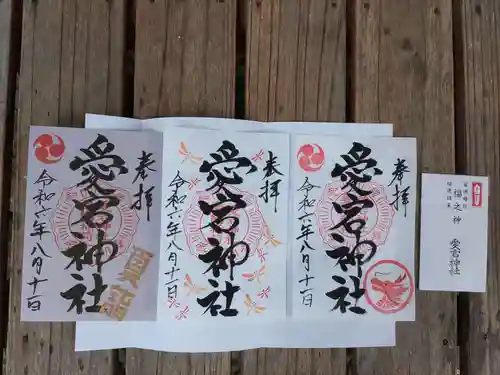 奉拝
愛宕神社
令和六年八月十一日
夏詣
奉拝
愛宕神社
令和六年八月十一日
奉拝
愛宕神社
令和六年八月十一日
福之神
愛宕神社